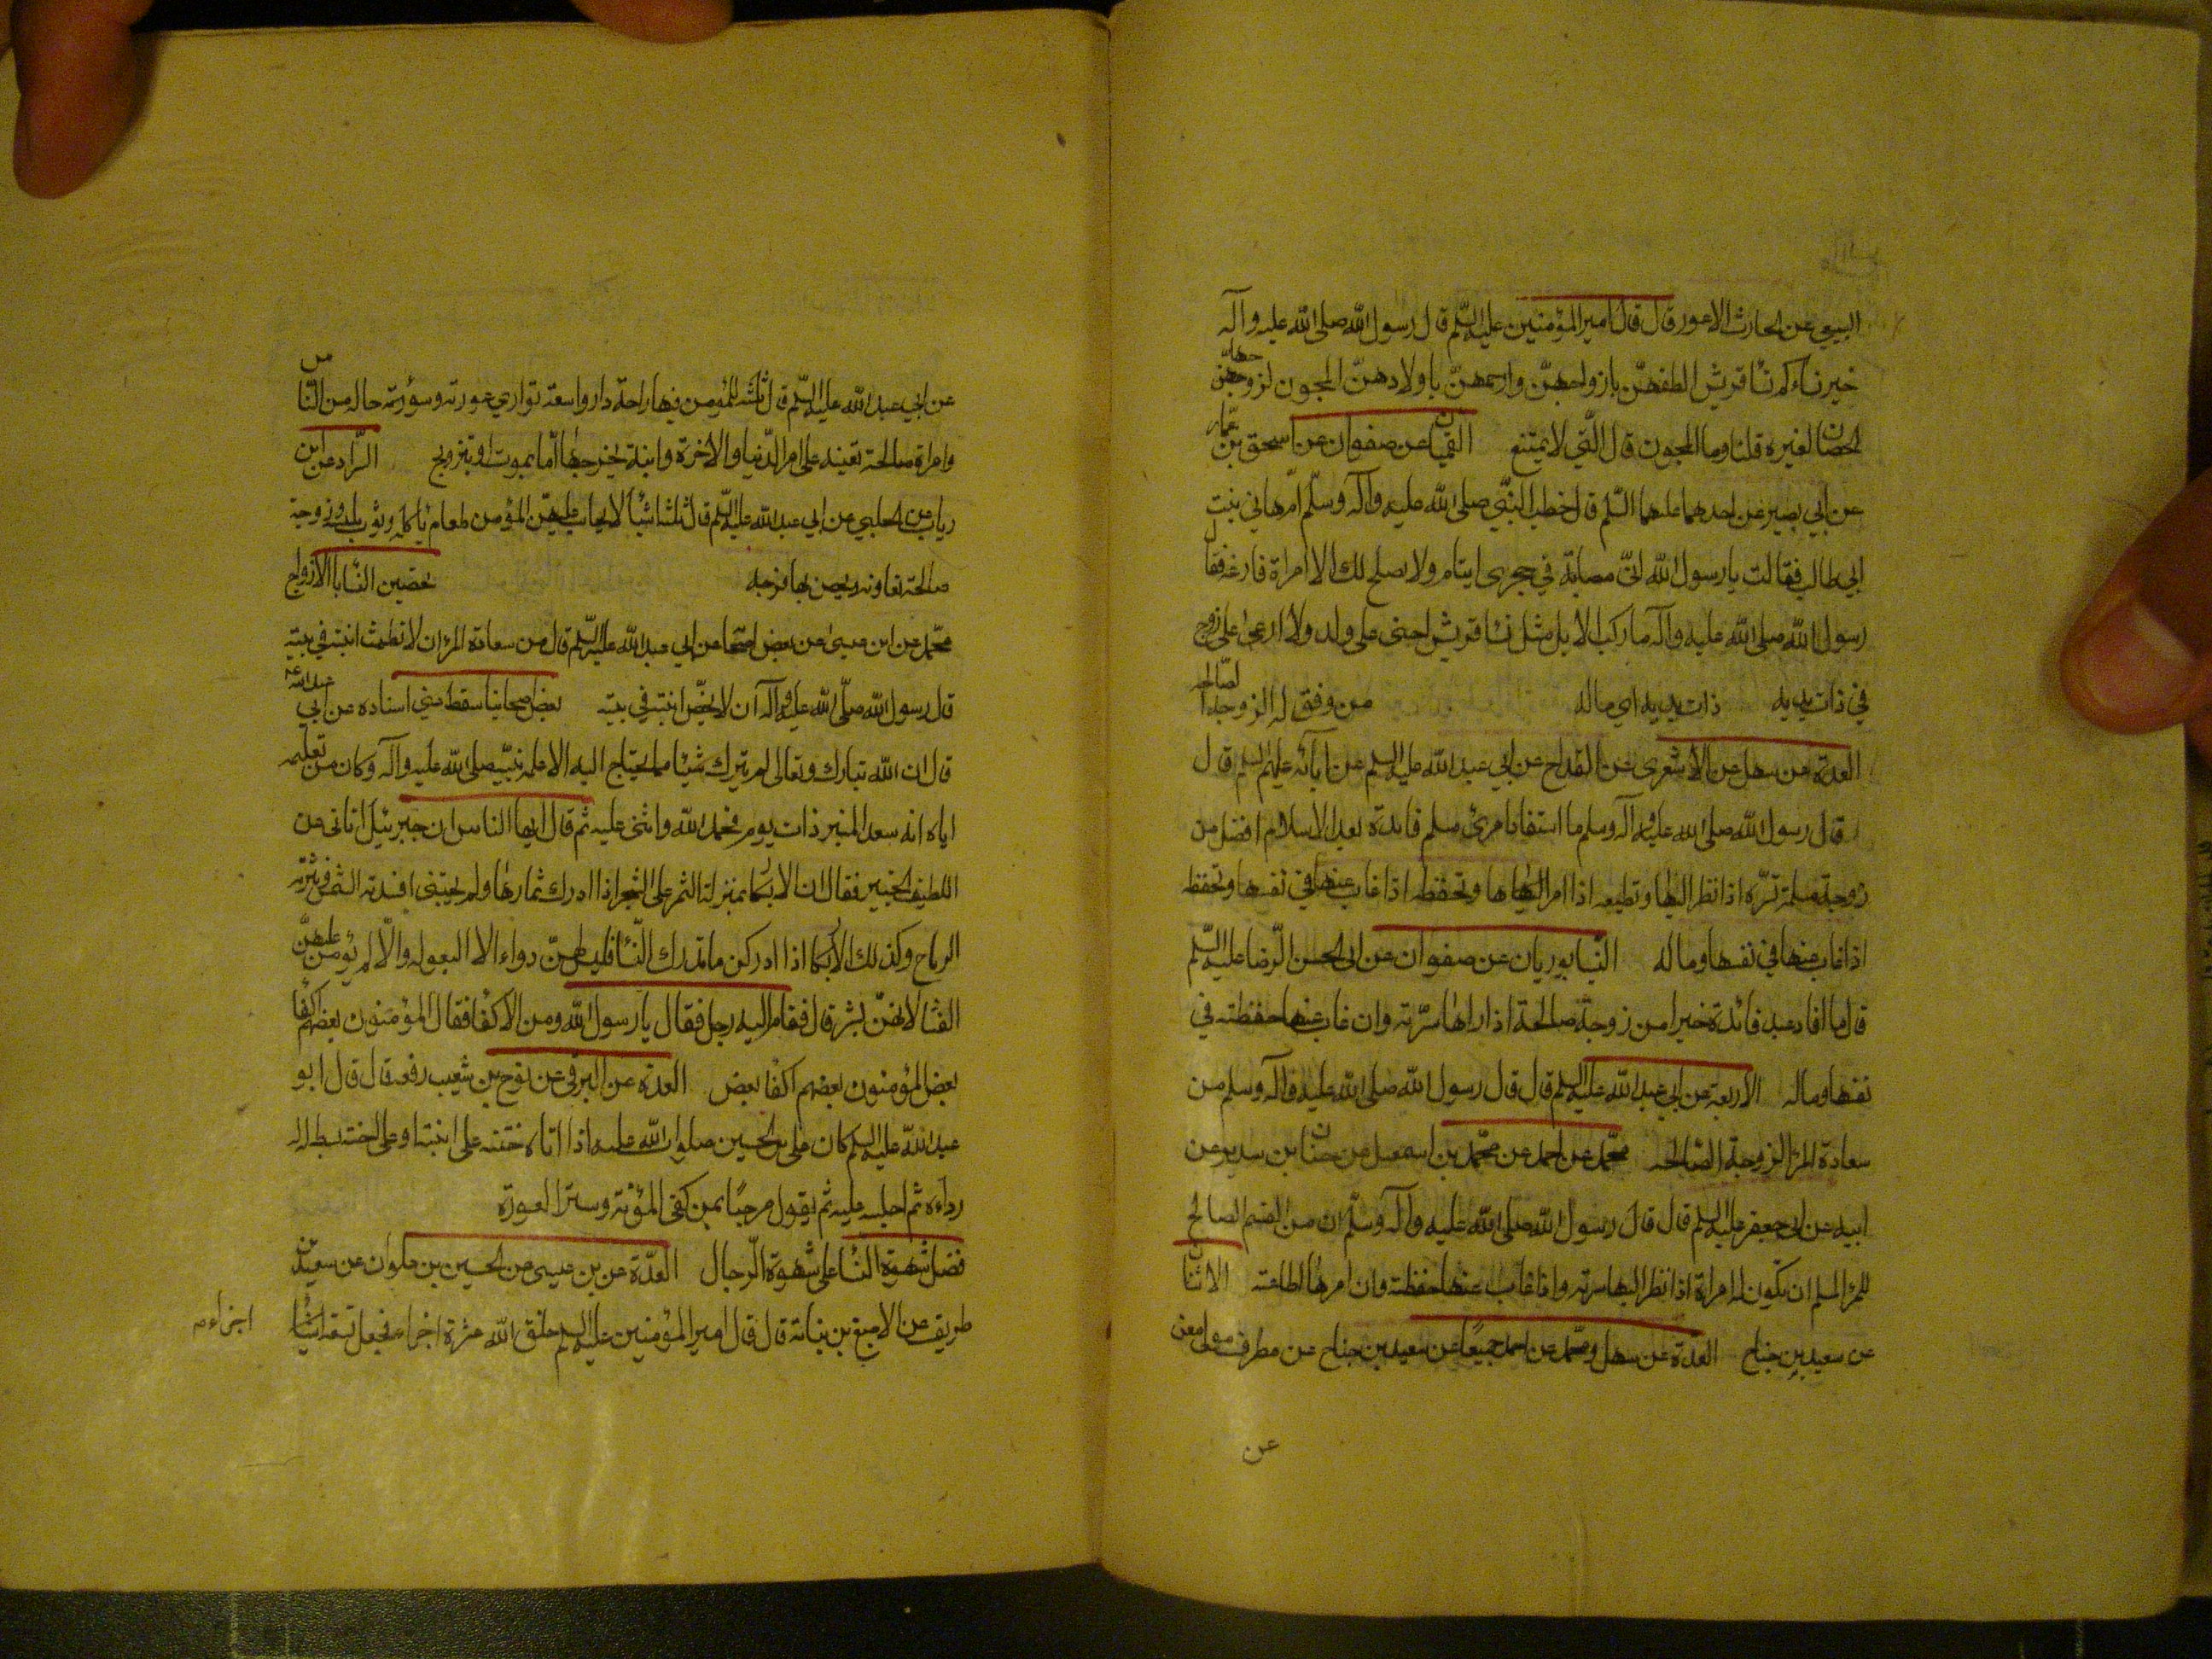 السبيعي عن الحارث الاعور قال قال امير المؤمنين عليه السلم قال رسول الله صلى الله عليه وآله
خير نساءكم نسا قريش الطفهنّ بازواجهنّ وارحمهنّ باولادهنّ المجون لزوجهنّ
الحصان لغيره قلنا وما المجون قال التي لا يمتنع القميان عن صفوان عن اسحق بن عمّار
عن ابي بصير عن احدهما عليهما السلم قال خطب النبي صلى الله عليه وآله وسلّم امّ هاني بنت
ابي طالب فقالت يا رسول الله انّي مصابة في حجرى ايتام ولا يصلح لك الا امراة فارغة فقال
رسول الله صلى الله عليه وآله ما ركب الابل مثل نسا قريش احنى على ولد ولا ارعى على زوج
في ذات يديه ذات يديه اي ماله من وفق له الزوجة الصالحه
العدة عن سهل عن الاشعرى عن القداح عن ابي عبد الله عليه السلم عن آبائه عليهم السلم قال
قال رسول الله صلى الله عليه وآله وسلم ما استفاد امرئ مسلم فايدة بعد الاسلام افضل من
زوجة مسلمة تسرّه اذا نظر اليها وتطيعه اذا امرها وتحفظه اذا غاب عنها في نفسها وتحفظه
اذا غاب عنها في نفسها وماله النيسابوريان عن صفوان عن ابى الحسن الرّضا عليه السّلم
قال ما افاد عبد فائدة خيرا من زوجة صالحة اذا راها سرّته وان غاب عنها حفظته في
نفسها وماله الاربعة عن ابي عبد الله عليه السلم قال قال رسول الله صلى الله عليه وآله وسلم من
سعادة المرء الزوجة الصالحه محمّد عن احمد عن محمّد بن اسمعيل عن حنان بن سدير عن
ابيه عن ابى جعفر عليه السلم قال قال رسول الله صلى الله عليه وآله وسلّم ان من القسم الصالح
للمرء المسلم ان تكون له امراة اذا نظر اليها سرته واذا غاب عنها حفظته وان امرها اطاعته الاثنان
عن سعيد بن جناح العدة عن سهل ومحمّد عن احمد جميعًا عن سعيد بن جناح عن مطرف مولى معن
عن
عن ابي عبد الله عليه السّلم قال ثلثة للمؤمن فيها راحة دار واسعة توارى عورته وسوء حاله من الناس
وامراة صالحة تعينه على امر الدّنيا والاخرة وابنة يخرجها امّا بموت او بتزويج السّراد عن ابن
رياب عن الحلبي عن ابي عبد الله عليه السّلم قال ثلثة اشيأ لا يحاسب عليهنّ المؤمن طعام يأكله وثوب يلبسه وزوجة
صالحة تعاونه ويحصن بها فرجه تحصين النّسا بالازواج
محمّد عن ابن عيسى عن بعض اصحابنا عن ابي عبد الله عليه السّلم قال من سعادة المرء ان لا تطمث ابنته في بيته
قال رسول الله صلّى الله عليه وآله ان لا تحيض ابنته في بيته بعض اصحابنا سقط عني اسناده عن ابي عبد الله ع
قال ان الله تبارك وتعالى لم يترك شيئا مما يحتاج اليه الا علمه نبيّه صلى الله عليه وآله وكان من تعليمه
اياه انه صعد المنبر ذات يوم فحمد الله واثنى عليه ثم قال ايها الناس ان جبرئيل اتانى عن
اللطيف الخبير فقال ان الابكار بمنزلة الثمر على الشجر اذا ادرك ثمارها ولم يجتنى افسدته الشمس ونثرته
الرياح وكذلك الابكار اذا ادركن ما تدرك النّسا فليس لهنّ دواء الا البعولة والّا لم يؤمن عليهنّ
الفسا لانهنّ بشر قال فقام اليه رجل فقال يا رسول الله ومن الاكفا فقال المؤمنون بعضهم اكفا
بعض المؤمنون بعضهم اكفا بعض العدة عن البرقى عن نوح بن شعيب رفعه قال قال ابو
عبد الله عليه السلم كان على بن الحسين صلوات الله عليه اذا اتاه ختنه على ابنته او على اخته بسط له
رداءه ثم اجلسه عليه ثم يقول مرحبًا بمن كفى المؤنة وستر العورة
فضل شهوة النّسا على شهوة الرّجال العدّة عن بن عيسى عن الحسين بن علوان عن سعد بن
طريف عن الاصبغ بن نباته قال قال امير المؤمنين عليه السلم خلق الله عشرة اجزاء فجعل تسعة
اجزاء